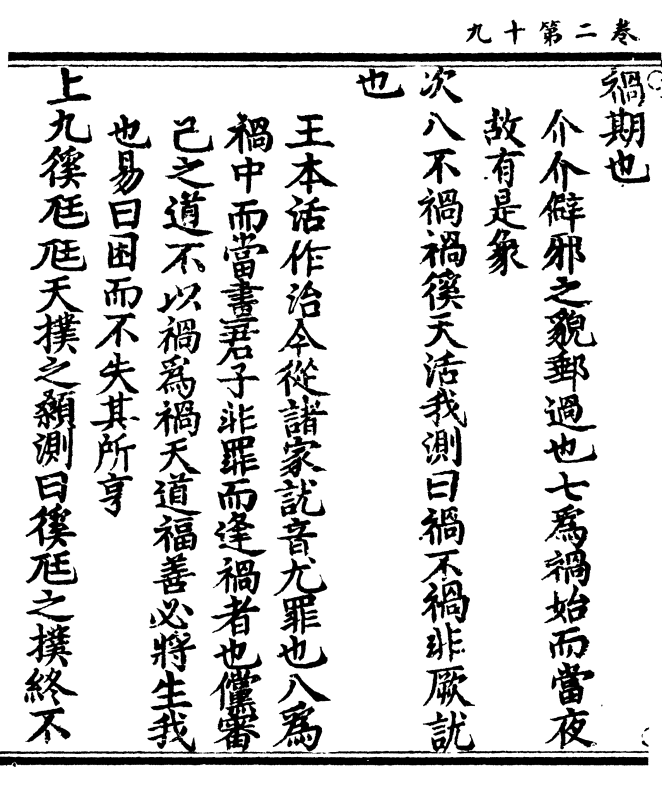 卷二第十九
禍期也
介介僻邪之貌郵過也七爲禍始而當夜
故有是象
次八不禍禍徯天活我測曰禍不禍非厥訧
也
王本活作治今從諸家訧音尤罪也八爲
禍中而當晝君子非罪而逢禍者也儻審
己之道不以禍爲禍天道福善必將生我
也易曰困而不失其所亨
上九徯尩尩天撲之顙測曰徯尩之撲終不